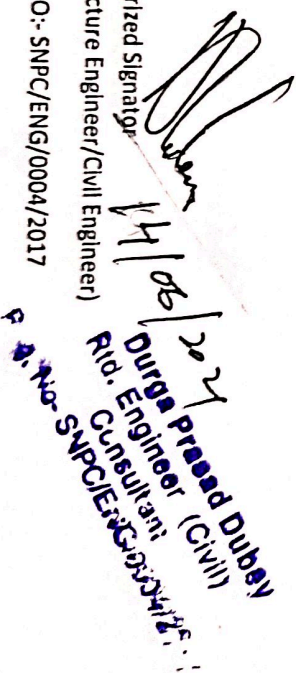 rized Signator
14/06/2021
cture Engineer/Civil Engineer)
O:- SNPC/ENG/0004/2017
Durga Prasad Dubey
Rtd. Engineer (Civil)
Consultant
No- SNPC/ENG/0004/